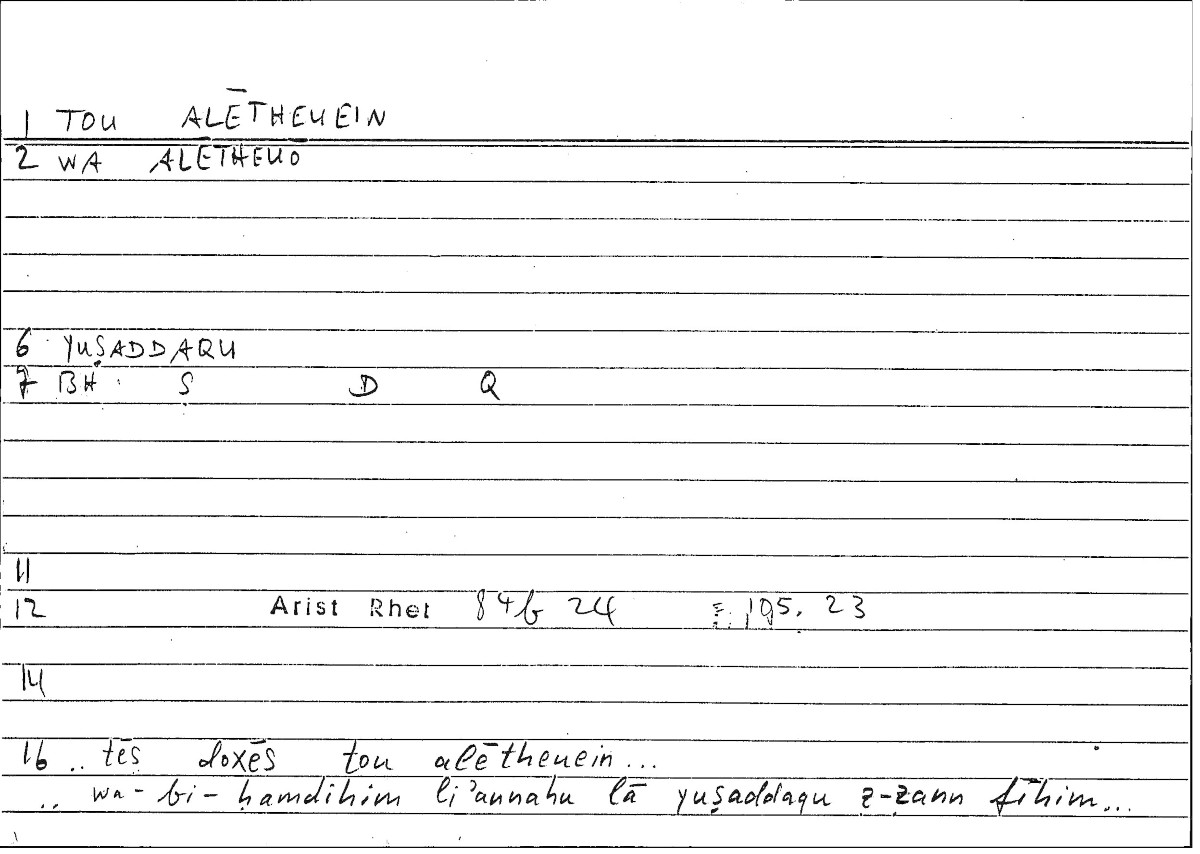 1 TOU ALĒTHEUEIN
2 WA ALĒTHEUŌ
6 YUṢADDAQU
7 BH Ṣ D Q
11
12 Arist Rhet 84b 24 195. 23
14
16 .. tēs doxēs tou alētheuein...
.. wa-bi-ḥamdihim li'annahu lā yuṣaddaqu ẓ-ẓann fīhim...